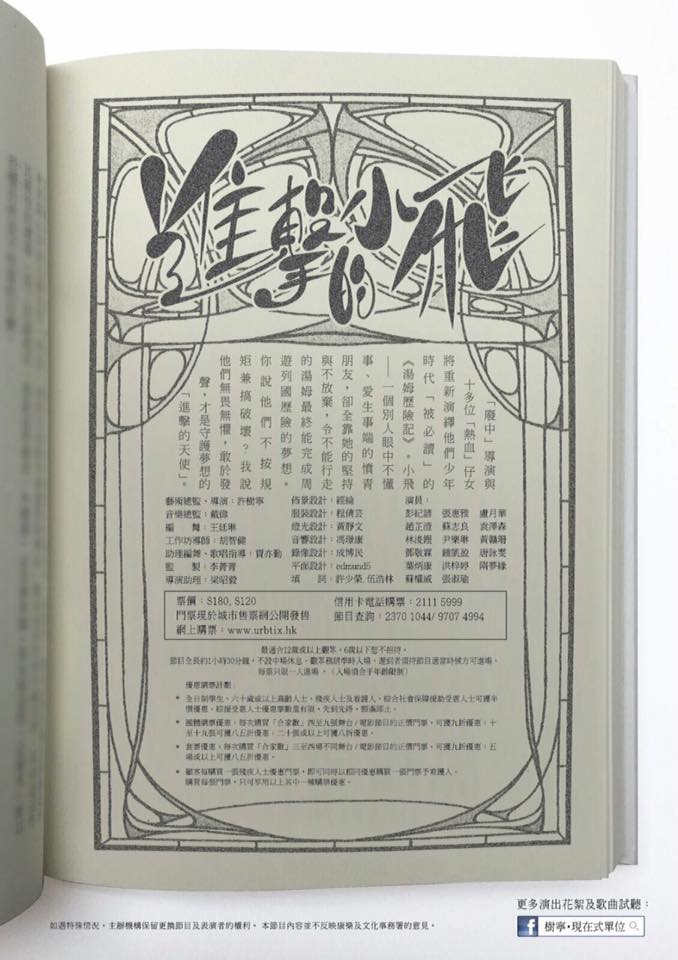 進擊的小飛
「廢中」導演與
十多位「熱血」仔女
將重新演繹他們少年
時代「被必讀」的
《湯姆歷險記》。小飛
——一個別人眼中不懂
事、愛生事端的憤青
朋友，卻全靠她的堅持
與不放棄，令不能行走
的湯姆最終能完成周
遊列國歷險的夢想。
你說他們不按規
矩兼搞破壞？我說
他們無畏無懼，敢於發
聲，才是守護夢想的
「進擊的天使」。
藝術總監、導演：許樹寧
音樂總監：戴偉
編　舞：王廷琳
工作坊導師：胡智健
助理編舞、歌唱指導：賈亦勤
監　製：李菁菁
導演助理：梁昭毅
佈景設計：經綸
服裝設計：程倩芸
燈光設計：黃靜文
音響設計：馮璟康
錄像設計：成博民
平面設計：edmund5
填　詞：許少榮, 伍浩林
演員：
張惠雅 盧月華
趙芷澄 蘇志良 袁澤森
林浚鏗 尹樂琳
鄧敬霖 鍾凱盈 唐詠雯
葉炳康 洪梓婷
蘇權威 張淑瑜
票價：$180, $120
門票現於城市售票網公開發售
網上購票：www.urbtix.hk
信用卡電話購票：2111 5999
節目查詢：2370 1044/ 9707 4994
最適合12歲或以上觀眾，6歲以下恕不招待。
節目全長約1小時30分鐘，不設中場休息。觀眾務請準時入場，遲到者須待節目適當時候方可進場。
每票只限一人進場。（入場須合乎年齡限制）
優惠購票計劃：
• 全日制學生、六十歲或以上高齡人士、殘疾人士及看護人、綜合社會保障援助受惠人士可獲半
價優惠。綜援受惠人士優惠票數量有限，先到先得，額滿即止。
• 團體購票優惠：每次購買「合家歡」四至九張舞台/電影節目的正價門票，可獲九折優惠；十
至十九張可獲八五折優惠；二十張或以上可獲八折優惠。
• 套票優惠：每次購買「合家歡」三至四場不同舞台/電影節目的正價門票，可獲九折優惠；五
場或以上可獲八五折優惠。
• 顧客每購買一張殘疾人士優惠門票，即可同時以相同優惠購買一張門票予看護人。
購買每張門票，只可享用以上其中一種購票優惠。
更多演出花絮及歌曲試聽：
f 樹寧•現在式單位
如遇特殊情況，主辦機構保留更換節目及表演者的權利。本節目內容並不反映康樂及文化事務署的意見。